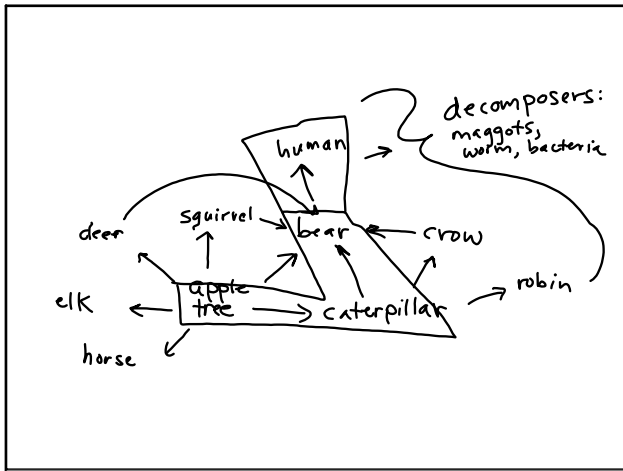 decomposers:
maggots,
worm, bacteria
human
squirrel
deer
bear
crow
elk
apple
tree
caterpillar
robin
horse